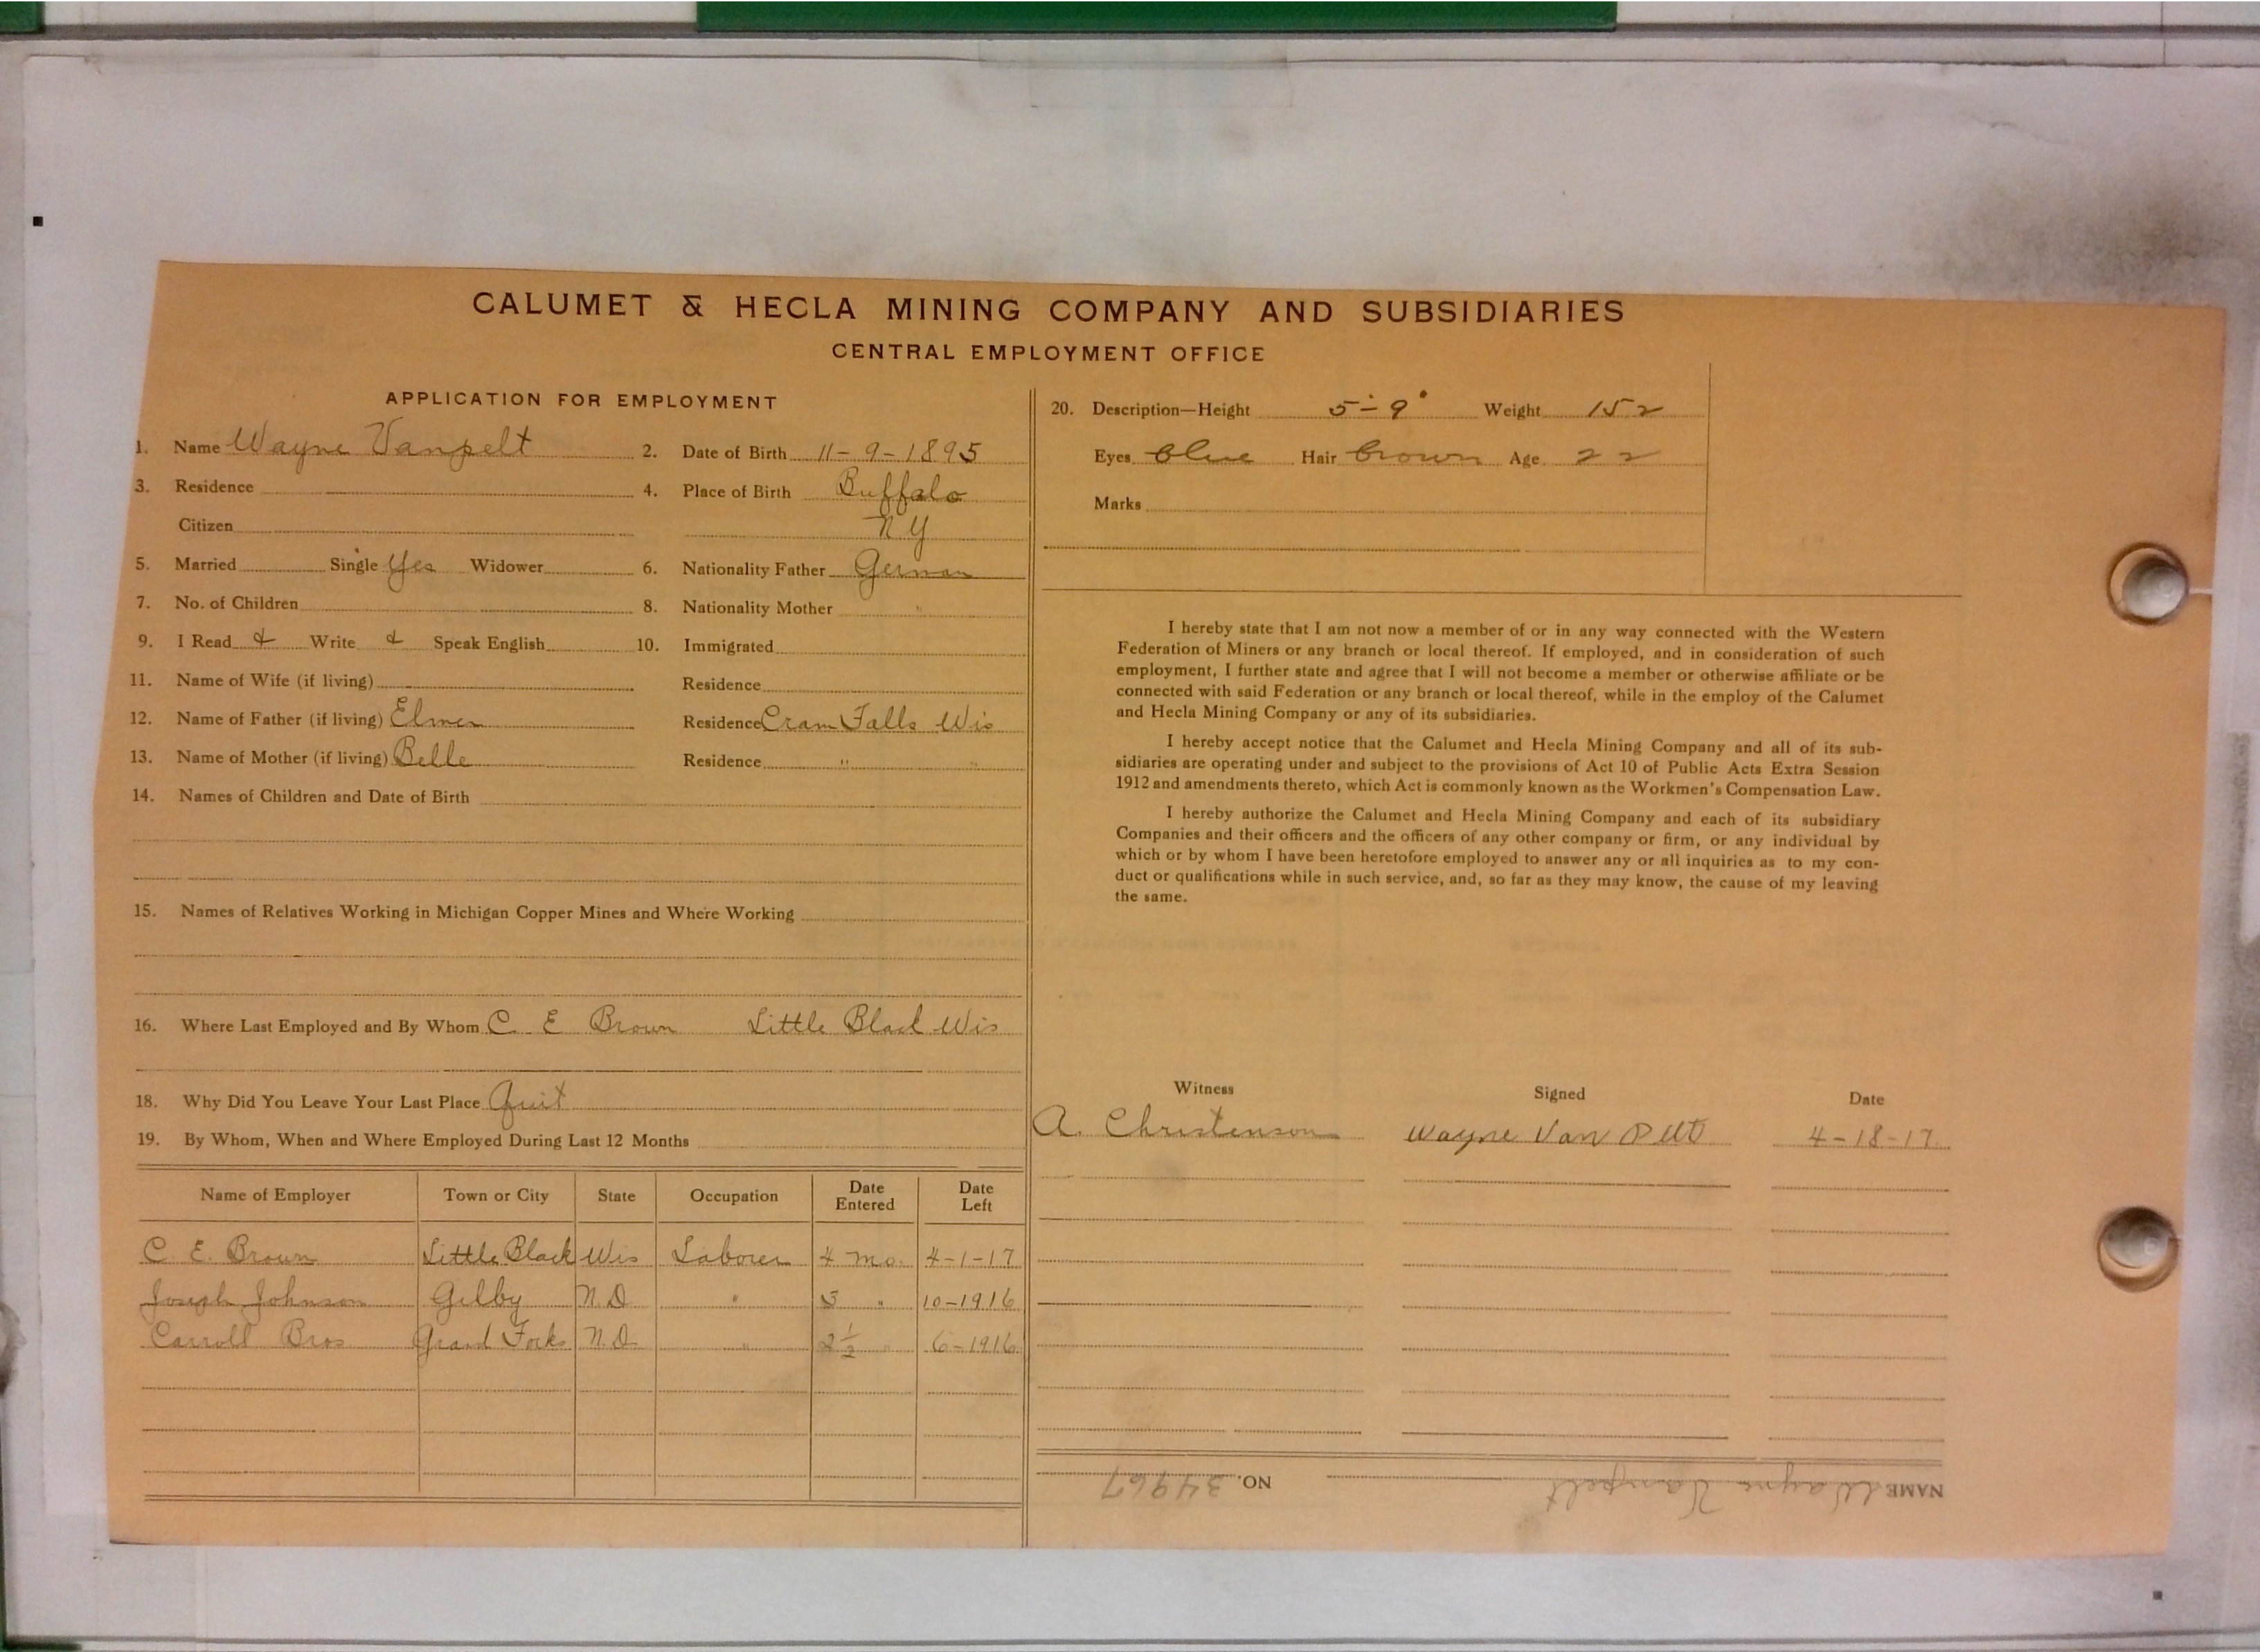 CALUMET & HECLA MINING COMPANY AND SUBSIDIARIES
CENTRAL EMPLOYMENT OFFICE
APPLICATION FOR EMPLOYMENT
1. Name Wayne Vanpelt 2. Date of Birth 11-9-1895
3. Residence 4. Place of Birth Buffalo
Citizen N Y
5. Married Single Yes Widower 6. Nationality Father German
7. No. of Children 8. Nationality Mother "
9. I Read & Write & Speak English 10. Immigrated
11. Name of Wife (if living) Residence
12. Name of Father (if living) Elmer Residence Cram Falls Wis
13. Name of Mother (if living) Belle Residence " "
14. Names of Children and Date of Birth
15. Names of Relatives Working in Michigan Copper Mines and Where Working
16. Where Last Employed and By Whom C. E Brown Little Black Wis
18. Why Did You Leave Your Last Place Quit
19. By Whom, When and Where Employed During Last 12 Months
Name of Employer Town or City State Occupation Date Entered Date Left
C. E. Brown Little Black Wis Laborer 4 mo. 4-1-17
Joseph Johnson Gilby N.D. " 3 " 10-1916
Carroll Bros Grand Forks N.D. " 2 1/2 " 6-1916
20. Description—Height 5-9" Weight 152
Eyes Blue Hair Brown Age 22
Marks
I hereby state that I am not now a member of or in any way connected with the Western
Federation of Miners or any branch or local thereof. If employed, and in consideration of such
employment, I further state and agree that I will not become a member or otherwise affiliate or be
connected with said Federation or any branch or local thereof, while in the employ of the Calumet
and Hecla Mining Company or any of its subsidiaries.
I hereby accept notice that the Calumet and Hecla Mining Company and all of its sub-
sidiaries are operating under and subject to the provisions of Act 10 of Public Acts Extra Session
1912 and amendments thereto, which Act is commonly known as the Workmen's Compensation Law.
I hereby authorize the Calumet and Hecla Mining Company and each of its subsidiary
Companies and their officers and the officers of any other company or firm, or any individual by
which or by whom I have been heretofore employed to answer any or all inquiries as to my con-
duct or qualifications while in such service, and, so far as they may know, the cause of my leaving
the same.
Witness Signed Date
A. Christenson Wayne Van Pelt 4-18-17
NAME Wayne Vanpelt NO. 34967